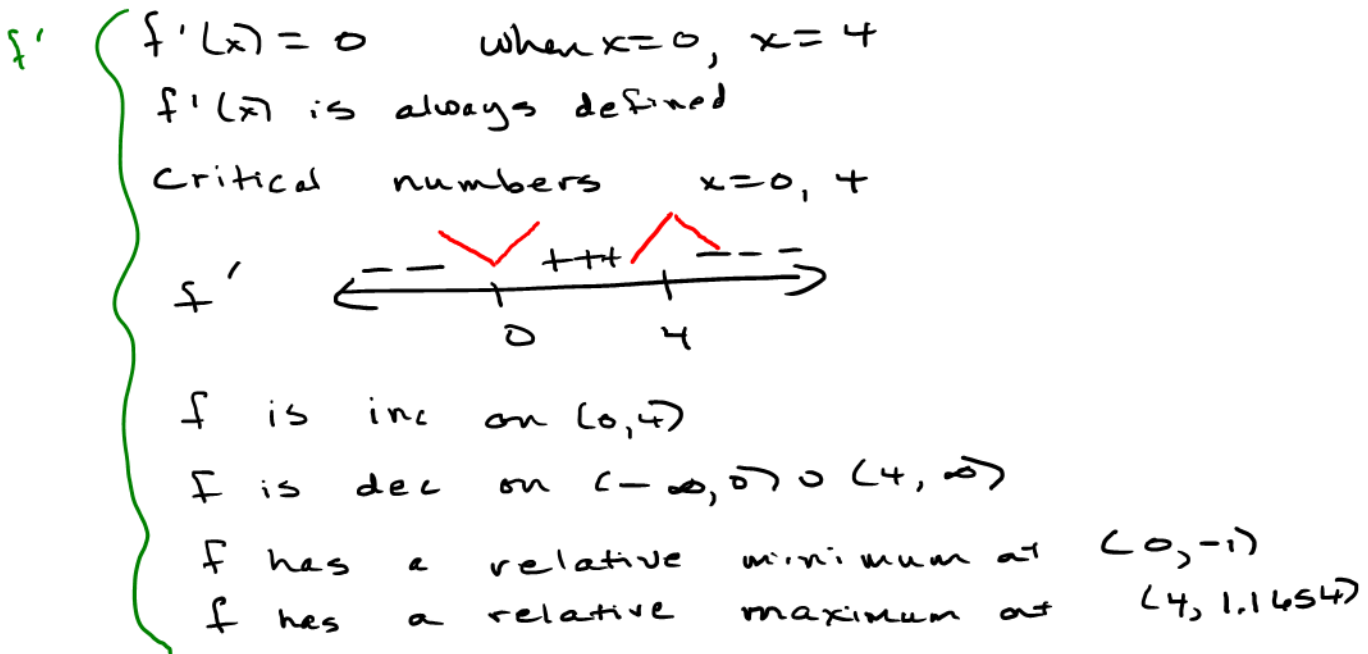 f' f'(x) = 0 when x=0, x=4
f'(x) is always defined
critical numbers x=0, 4
-- +++ ---
f'
0 4
f is inc on (0,4)
f is dec on (-∞,0) ∪ (4,∞)
f has a relative minimum at (0,-1)
f has a relative maximum at (4, 1.1654)